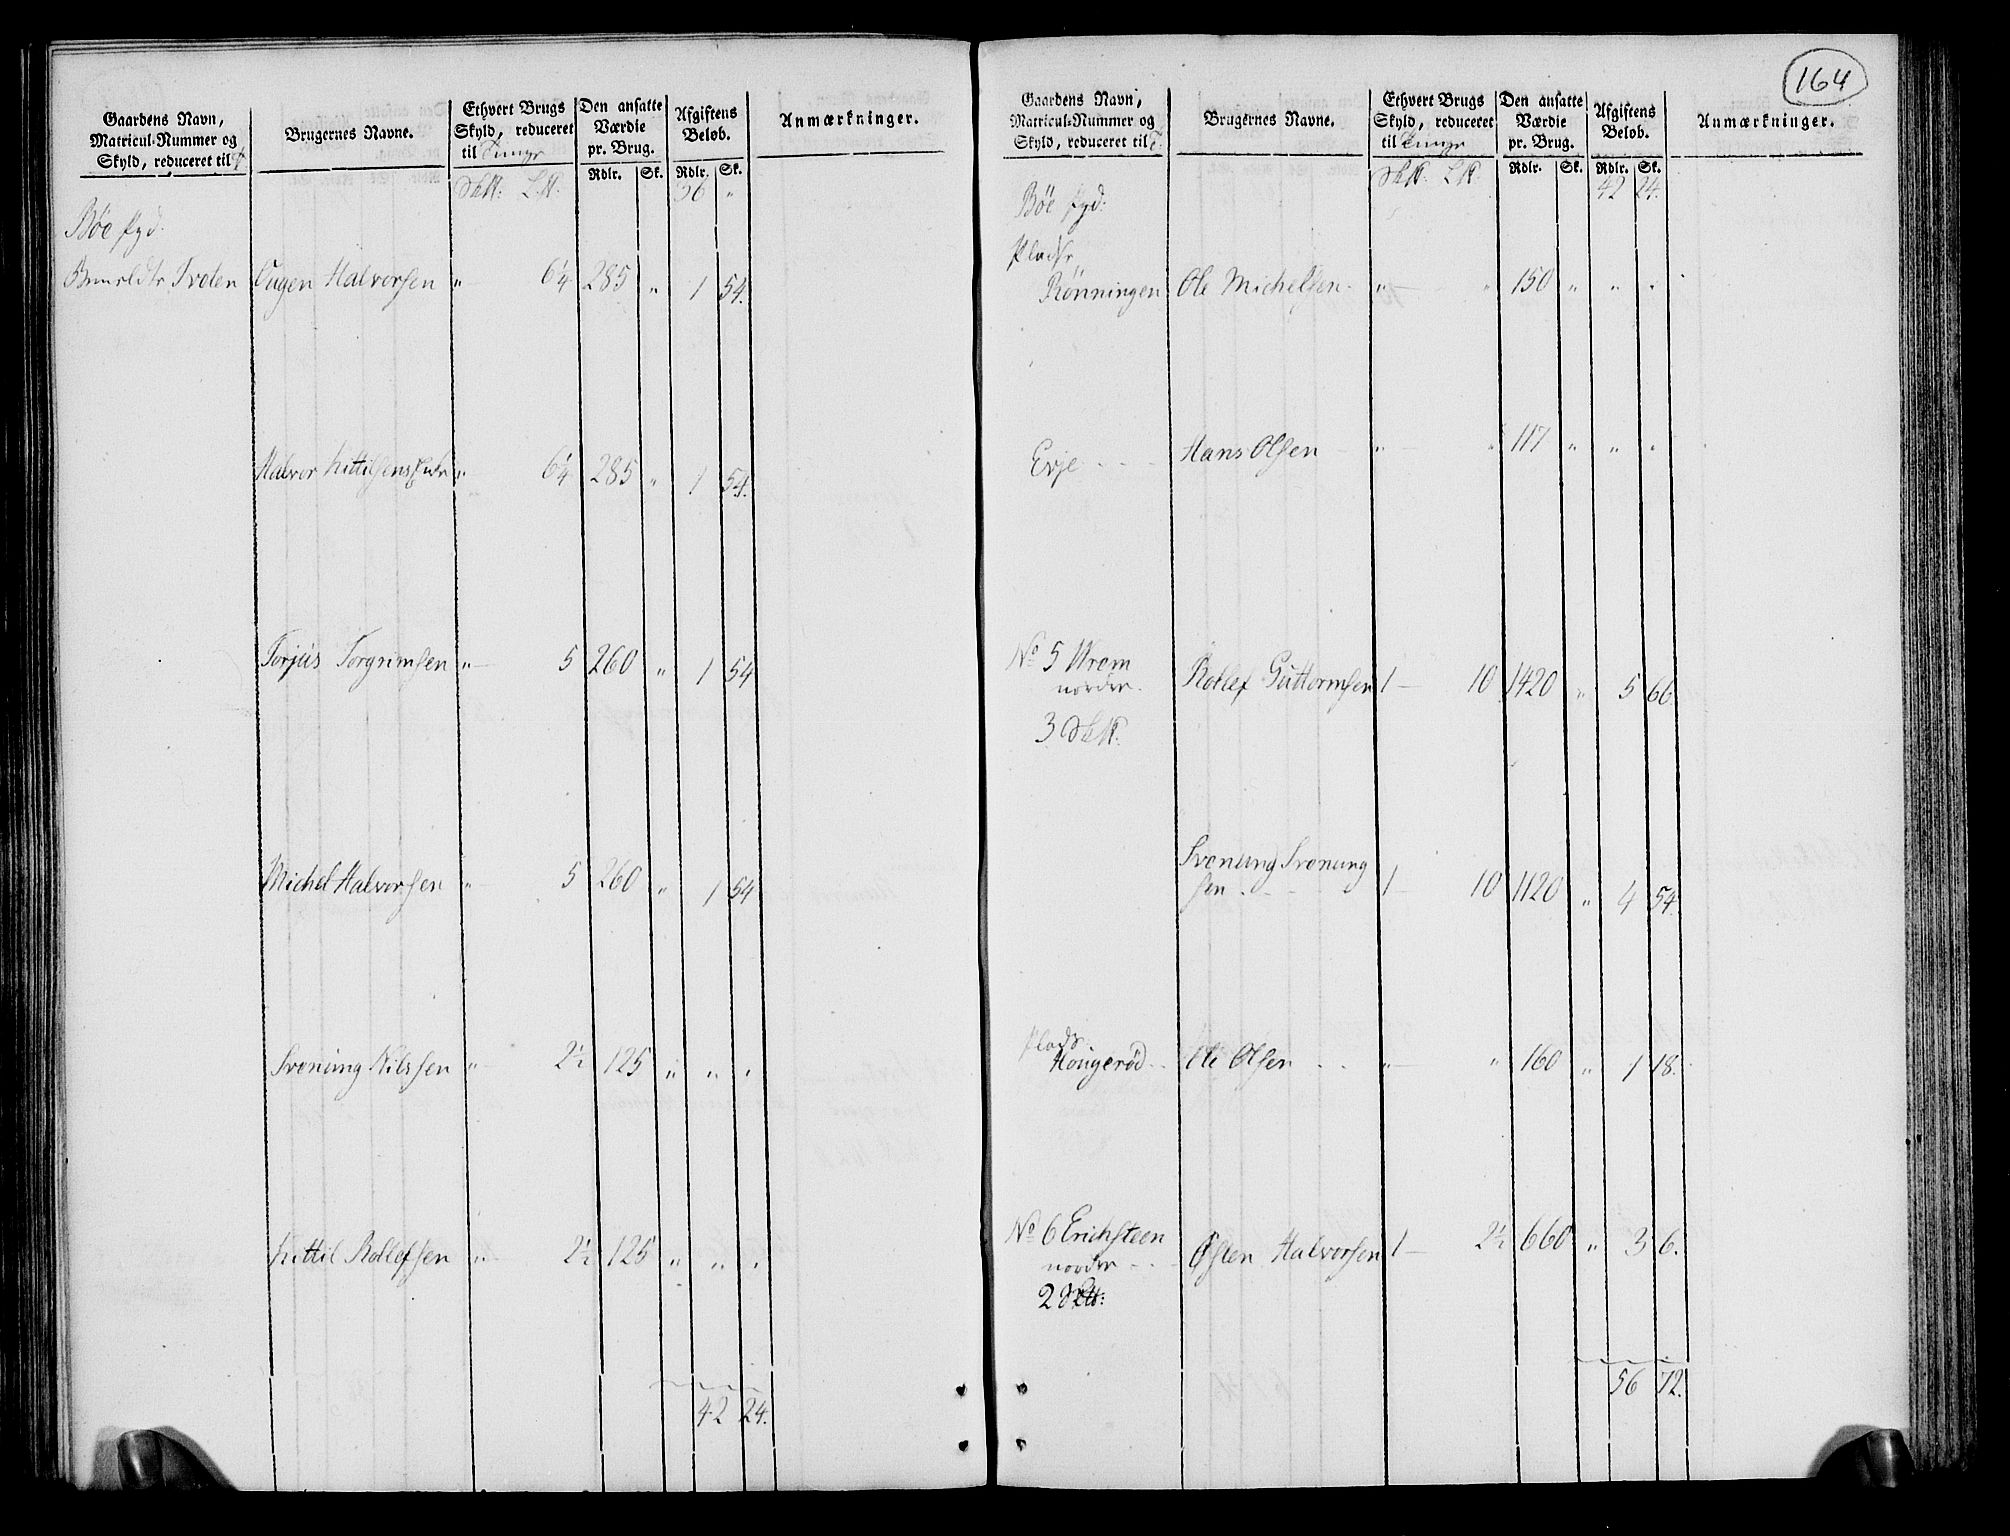 164
Gaardens Navn, Matricul-Nummer og Skyld, reduceret til
Brugernes Navne.
Ethvert Brugs Skyld, reduceret til
Den ansatte Værdie pr. Brug.
Afgiftens Beløb.
Anmærkninger.
Rdlr. Sk. Rdlr. Sk.
36 "
Bøe
Tveten Halvorsen " 6¼ 285 " 1 54.
Halvor " 6¼ 285 " 1 54.
Torjus Torgrimsen " 5 260 " 1 54
Michel Halvorsen " 5 260 " 1 54
Svenung Nilssen " 2½ 125 " " "
Kittil Rollefsen " 2½ 125 " " "
42 24.
Gaardens Navn, Matricul-Nummer og Skyld, reduceret til
Brugernes Navne.
Ethvert Brugs Skyld, reduceret til
Den ansatte Værdie pr. Brug.
Afgiftens Beløb.
Anmærkninger.
Rdlr. Sk. Rdlr. Sk.
42 24.
Bøe
Plads
Rønningen Ole Michelsen " " 150 " " "
Evje Hans Olsen " " 117 " " "
No 5 Wrem Rollef Guttormsen 1 10 1420 " 5 66.
nordre
3
Svenung Svenung
sen 1 10 1120 " 4 54.
Plads
Hougerød Ole Olsen " " 160 " 1 18.
No 6 Erichsteen Østen Halvorsen 1 2½ 660 " 3 6.
nordre
2
56 72.